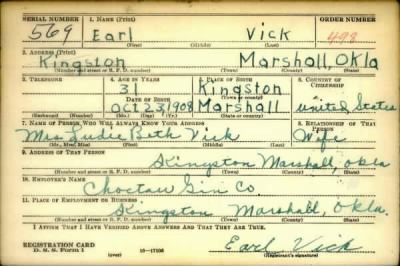 SERIAL NUMBER 1. NAME (Print) ORDER NUMBER
569 Earl Vick 498
(First) (Middle) (Last)
2. ADDRESS (Print)
Kingston Marshall, Okla
(Number and street or R. F. D. number) (Town) (County) (State)
3. TELEPHONE 4. AGE IN YEARS 5. PLACE OF BIRTH 6. COUNTRY OF CITIZENSHIP
31 Kingston
DATE OF BIRTH (Town or county)
Oct 23, 1908 Marshall United States
(Exchange) (Number) (Mo.) (Day) (Yr.) (State or country)
7. NAME OF PERSON WHO WILL ALWAYS KNOW YOUR ADDRESS 8. RELATIONSHIP OF THAT PERSON
Mrs Ludie Beth Vick Wife
(Mr., Mrs., Miss) (First) (Middle) (Last)
9. ADDRESS OF THAT PERSON
Kingston Marshall, Okla
(Number and street or R. F. D. number) (Town) (County) (State)
10. EMPLOYER'S NAME
Choctaw Gin Co
11. PLACE OF EMPLOYMENT OR BUSINESS
Kingston Marshall, Okla.
(Number and street or R. F. D. number) (Town) (County) (State)
I AFFIRM THAT I HAVE VERIFIED ABOVE ANSWERS AND THAT THEY ARE TRUE.
REGISTRATION CARD
D. S. S. Form 1 (over) 16-17105 Earl Vick
(Registrant's signature)